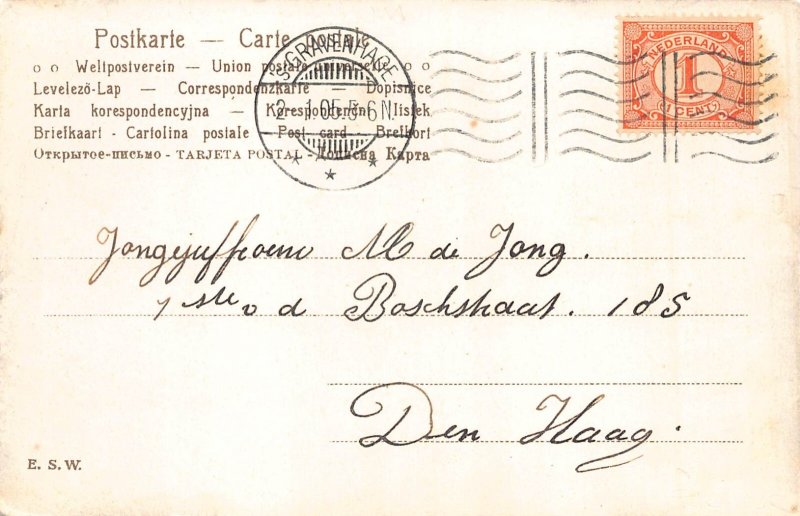 Postkarte — Carte postale
o o Weltpostverein — Union postale universelle o o
Levelező-Lap — Correspondenzkarte — Dopisnice
Karta korespondencyjna — Korespondencni lístek
Briefkaart - Cartolina postale - Post card - Brefkort
Открытое-письмо - TARJETA POSTAL - Дописна Карта
'S-GRAVENHAGE
2 1 05 5-6N
NEDERLAND
1
(1 CENT)
Jongejuffrouw M de Jong.
1ste v d Boschstraat. 185
Den Haag.
E. S. W.